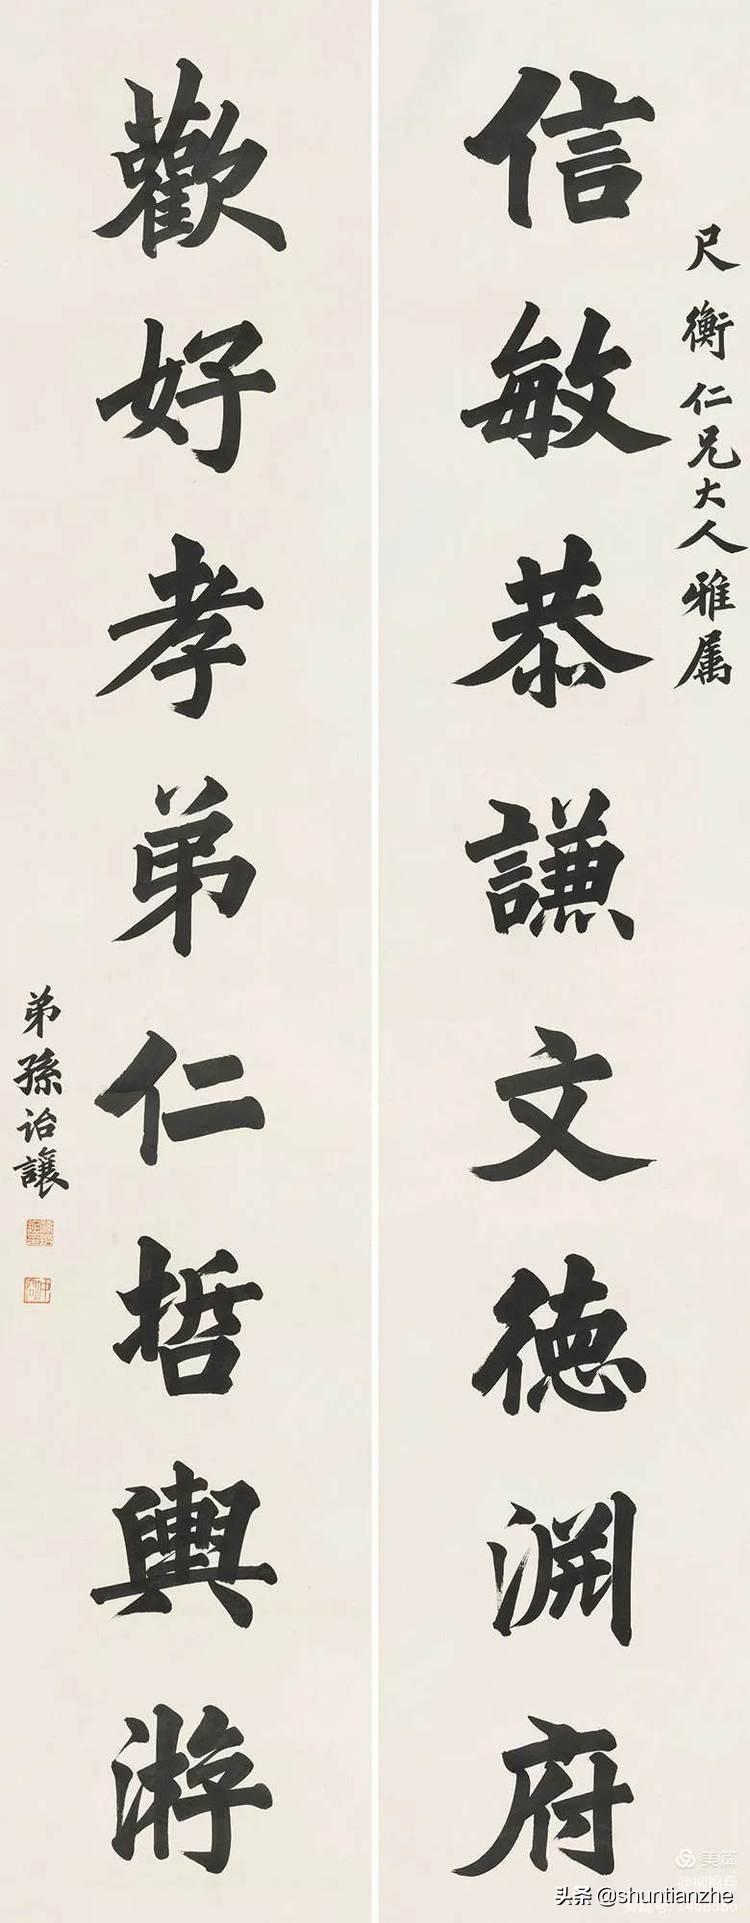 尺衡仁兄大人雅属
信敏恭謙文德淵府
歡好孝弟仁哲輿游
弟孫詒讓
美篇
头条@shuntianzhe